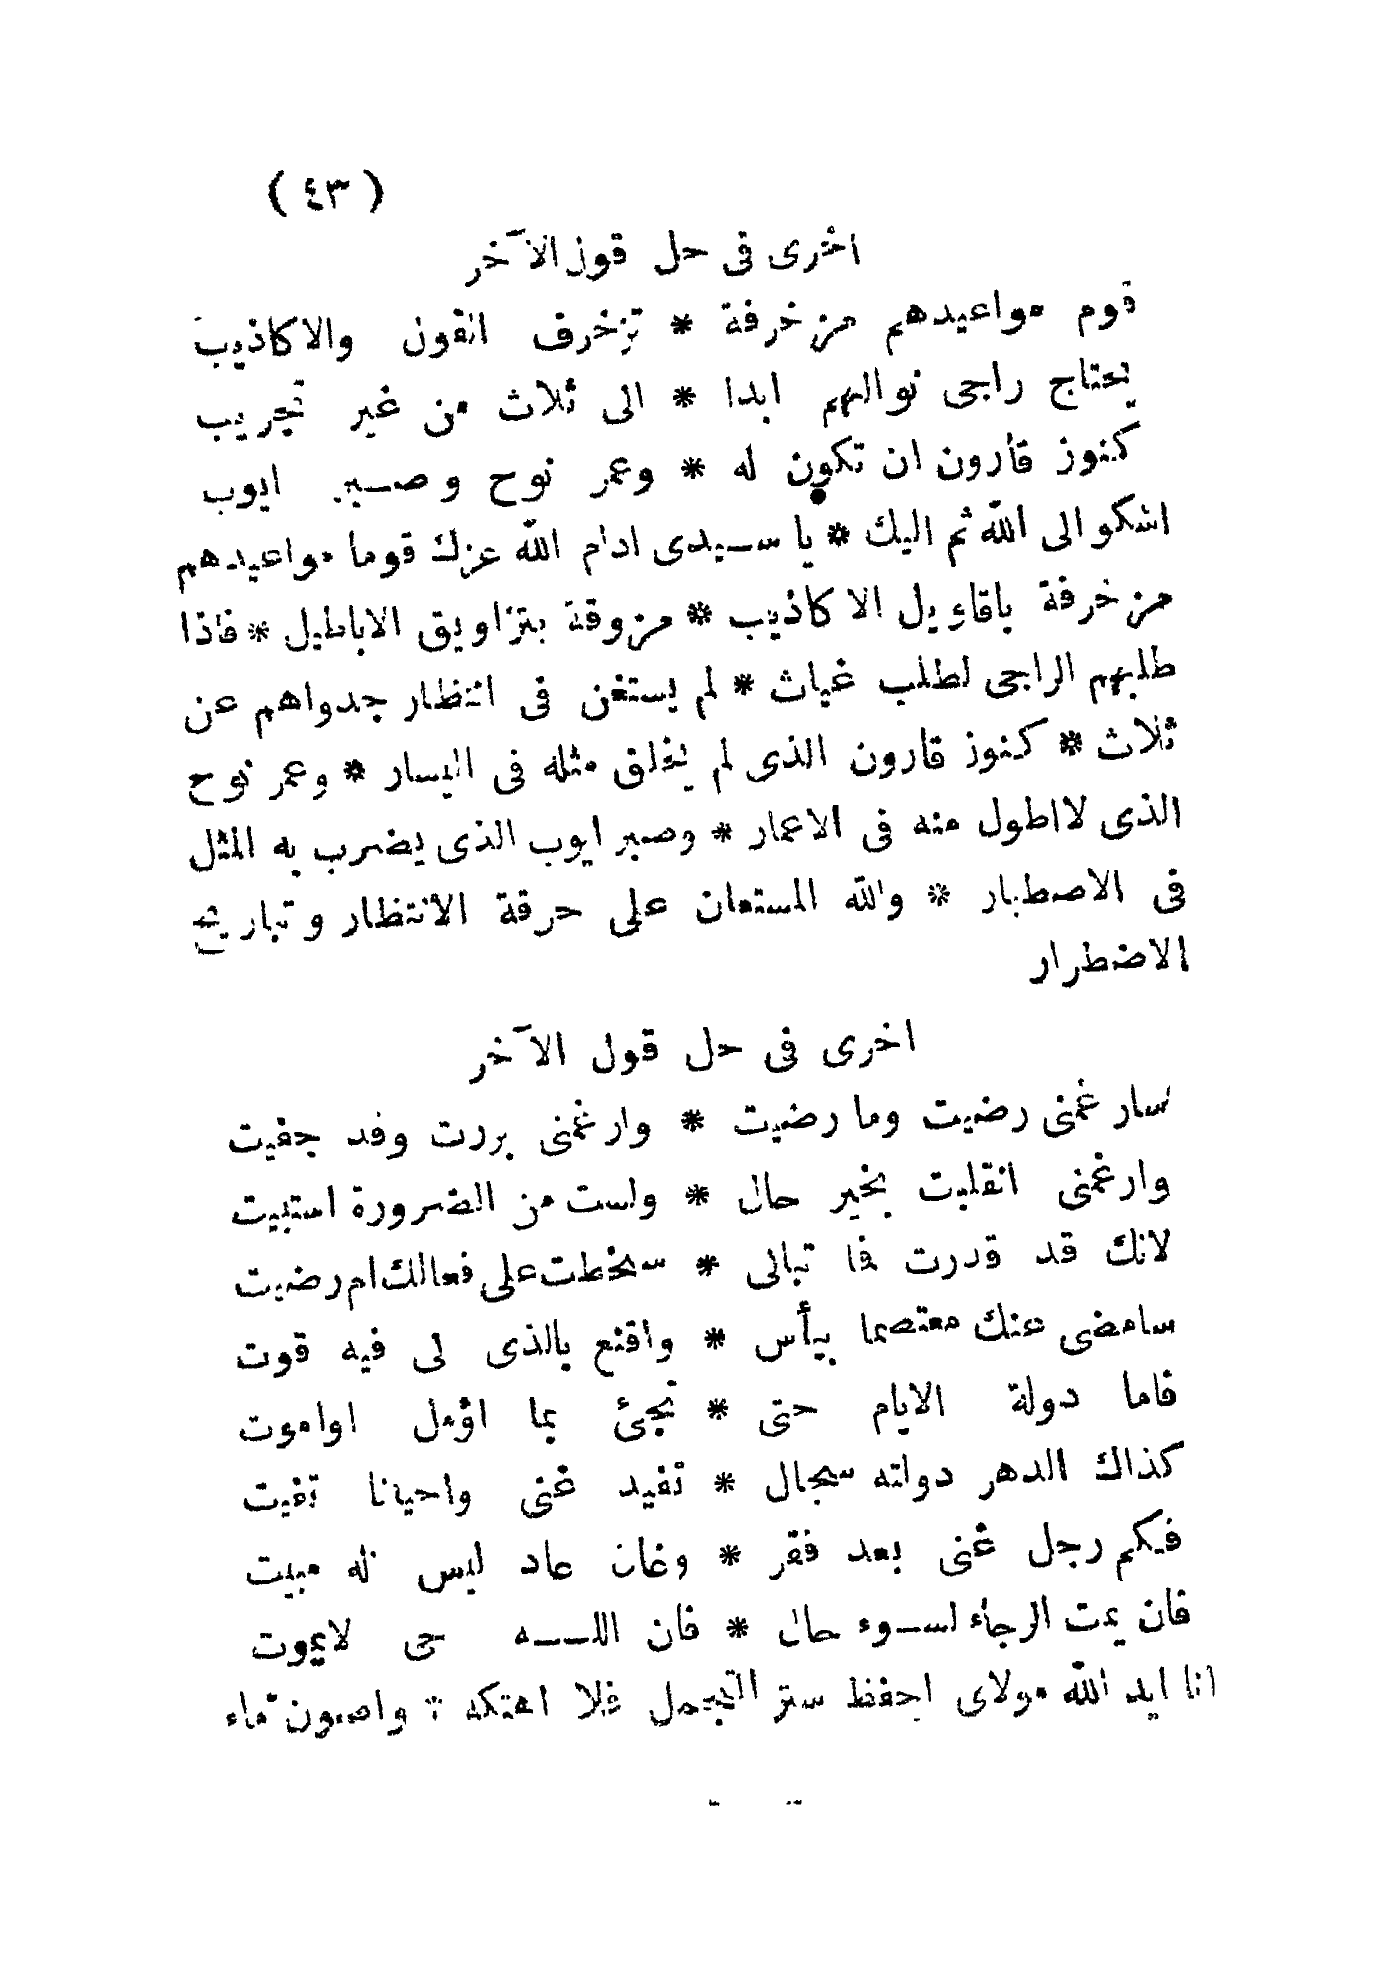 ( ٤٣ )
اخرى فى حل قول الآخر
قوم مواعيدهم مزخرفة * تزخرف القول والاكاذيب
يحتاج راجى نوالهم ابدا * الى ثلاث من غير تجريب
كنوز قارون ان تكون له * وعمر نوح وصـبر ايوب
اشكو الى الله ثم اليك * يا سـيدى ادام الله عزك قوما مواعيدهم
مزخرفة باقاويل الاكاذيب * مزوقة بتزاويق الاباطيل * فاذا
طلبهم الراجى لطلب غياث * لم يستغن فى انتظار جدواهم عن
ثلاث * كنوز قارون الذى لم يخلق مثله فى اليسار * وعمر نوح
الذى لااطول منه فى الاعمار * وصبر ايوب الذى يضرب به المثل
فى الاصطبار * والله المستعان على حرقة الانتظار وتباريح
الاضطرار
اخرى فى حل قول الآخر
سارغمنى رضيت وما رضيت * وارغمنى بررت وقد جفيت
وارغمنى انقلبت بخير حال * ولست من الضرورة استبيت
لانك قد قدرت فما تبالى * سخطت على فعالك ام رضيت
سامضى عنك معتصما بيأس * واقنع بالذى لى فيه قوت
فاما دولة الايام حتى * تجئ بما اؤمل اواموت
كذاك الدهر دولته سجال * تفيد غنى واحيانا تفيت
فـكم رجل غنى بعد فقر * وغان عاد ليس له مبيت
فان يمت الرجاء لسـوء حال * فان اللـــه حى لايموت
انا ايد الله مولاى احفظ ستر التجمل فلا اهتكه * واصون ماء